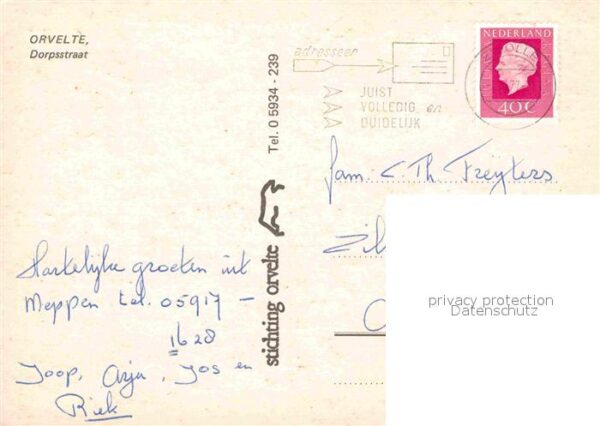 ORVELTE,
Dorpsstraat
adresseer
JUIST
VOLLEDIG en
DUIDELIJK
NEDERLAND
40c
Tel. 0 5934 - 239
stichting orvelte
fam. C. Th. Freyters
privacy protection
Datenschutz
Hartelijke groeten uit
Meppen tel. 05917 –
1628
Joop, Arja, Jos en
Riek